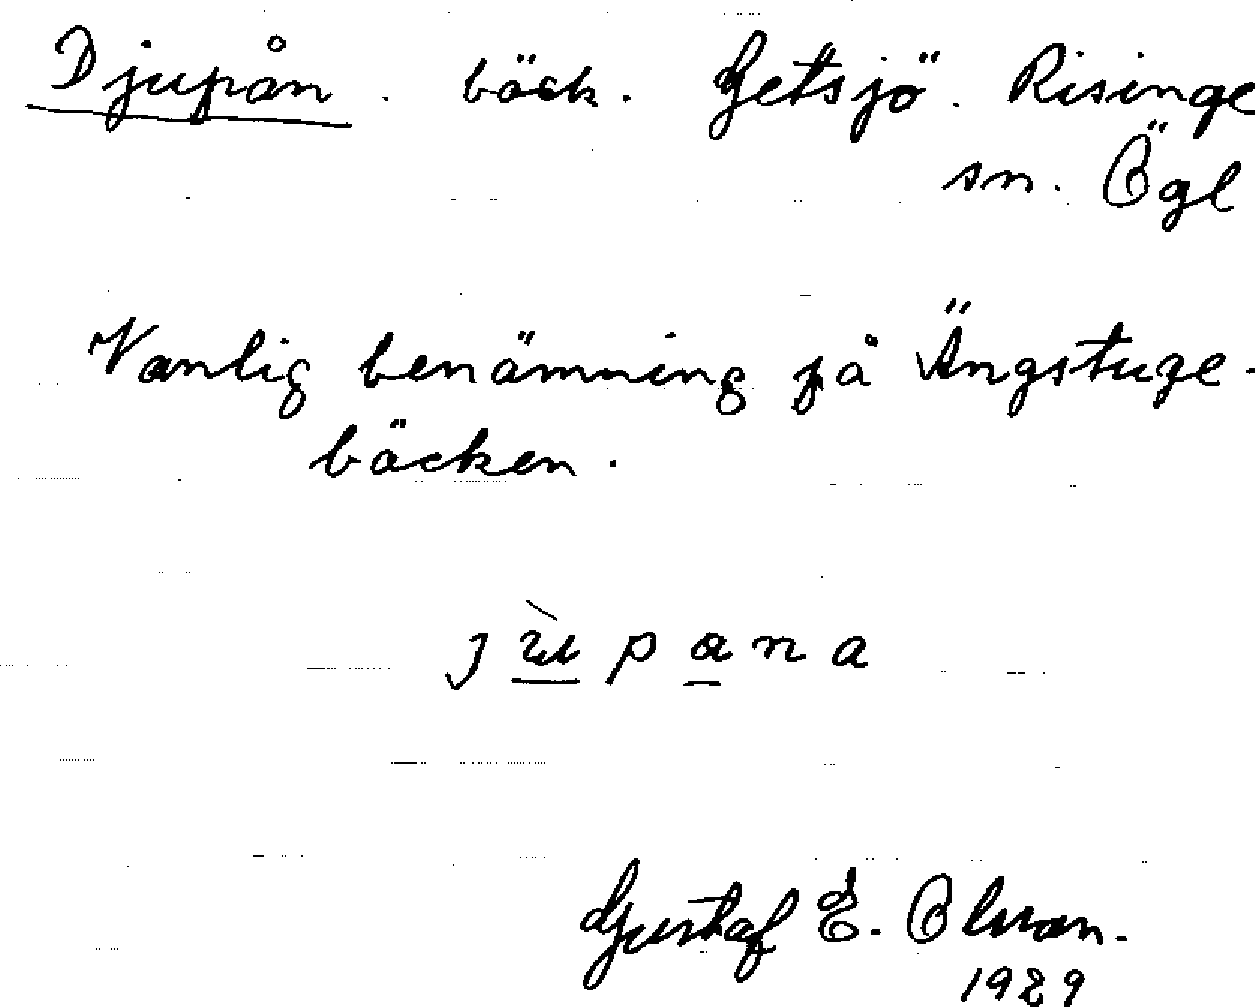 Djupån. bäck. Getsjö. Risinge
sn. Ögl
Vanlig benämning på Ängstuge-
bäcken.
Gustaf E. Olson.
1929